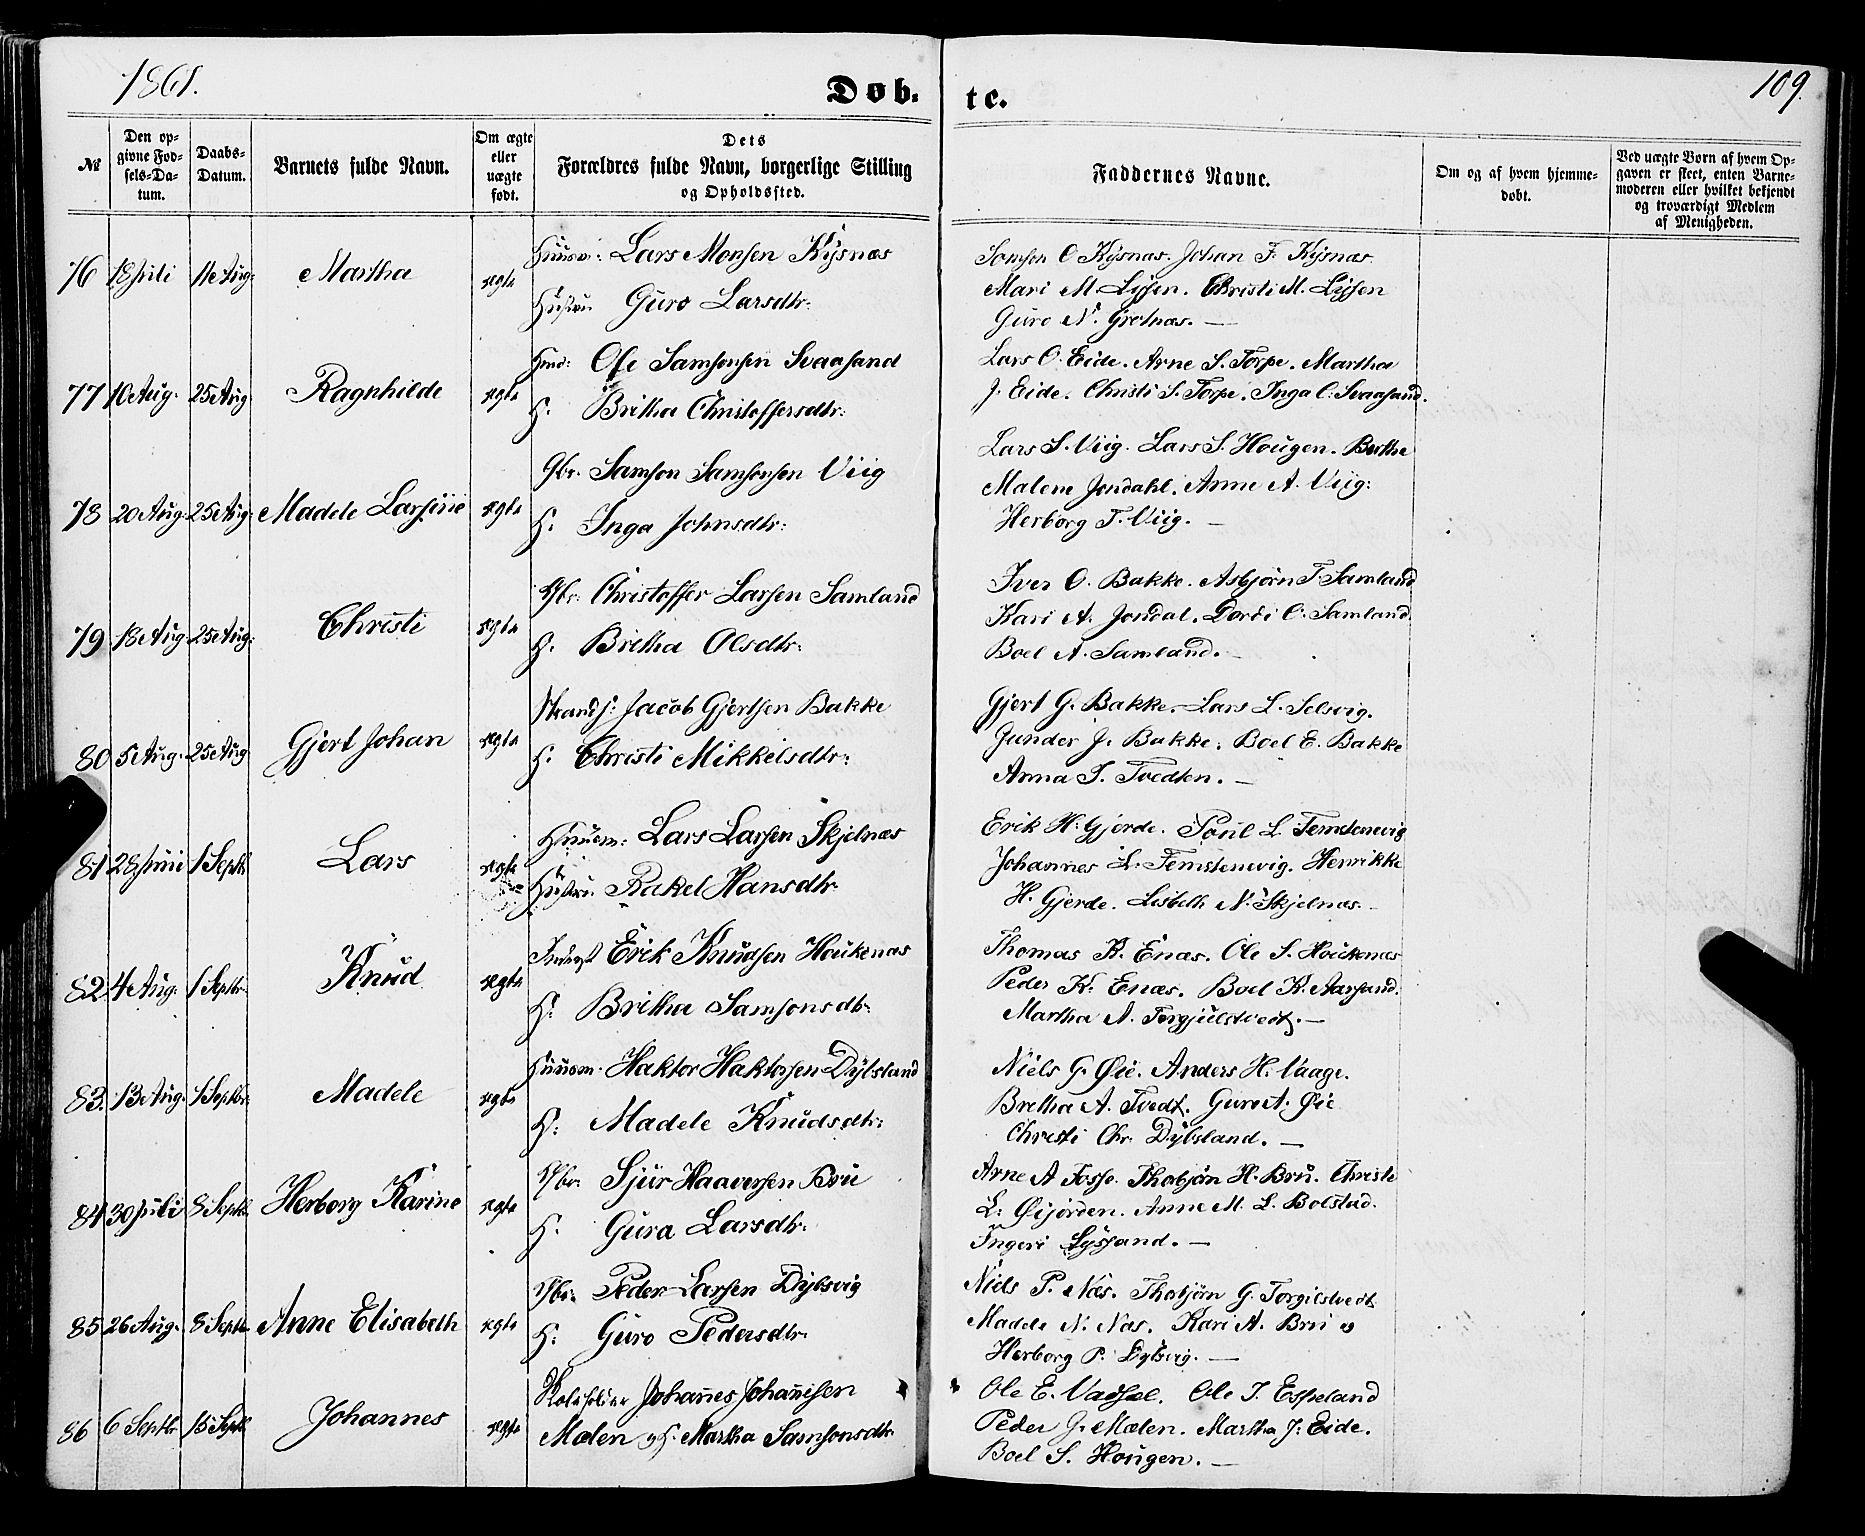 1861.
Døb-
te.
109.
№
Den op-
givne Fød-
sels-Da-
tum.
Daabs-
Datum.
Barnets fulde Navn.
Om ægte
eller
uægte
født.
Dets
Forældres fulde Navn, borgerlige Stilling
og Opholdssted.
Faddernes Navne.
Om og af hvem hjemme-
døbt.
Ved uægte Børn af hvem Op-
gaven er skeet, enten Barne-
moderen eller hvilket bekjendt
og troværdigt Medlem
af Menigheden.
76 18 Juli 11e Aug: Martha ægte
Huusm: Lars Monsen Kysnæs
Hustru Guro Larsdtr:
Samson O Kysnæs. Johan F. Kysnæs
Mari M. Lysen. Christi M. Lysen
Guro N. Gretnæs. —
77 10 Aug. 25 Aug Ragnhilde ægte
Huus: Ole Samsonsen Svaasand
H. Britha Christoffersdtr:
Lars O. Eide. Arne S. Torpe. Martha
J. Eide. Christi S. Torpe. Inga C. Svaasand.
78 20 Aug. 25 Aug. Madele Larsine ægte
Gbr. Samson Samsonsen Viig
H. Inga Johnsdtr:
Lars S. Viig. Lars S. Hougen. Berthe
Malene Jondahl. Anne A. Viig.
Herborg T. Viig. —
79 18 Aug 25 Aug. Christi ægte
Gbr: Christoffer Larsen Samland
H. Britha Olsdtr:
Iver O. Bakke. Asbjørn T. Samland
Kari A. Jondal. Dordi C. Samland.
Boel A. Samland. —
80 5 Aug. 25 Aug Gjert Johan ægte
Strands: Jacob Gjertsen Bakke
H. Christi Mikkelsdtr:
Gjert G. Bakke. Lars L. Selsvig.
Gunder J. Bakke. Boel E. Bakke
Anna S. Tvedten. —
81 28 Juni 1 Septb Lars ægte
Huusm: Lars Larsen Skjelnæs
Hustru Rakel Hansdtr
Erik H. Gjerde. Poul L. Femstenevig
Johannes L. Femstenevig. Henrikke
H. Gjerde. Lisbeth N. Skjelnæs. —
82 4 Aug. 1 Septbr. Knud ægte
Inderst Erik Knudsen Houkenæs
H. Britha Samsonsdtr.
Thomas K. Enæs. Ole S. Houkenæs
Peder K. Enæs. Boel K. Aarsand.
Martha A. Torgjulstvedt. —
83. 13 Aug. 1 Septbr. Madele ægte
Huusm. Haktor Haktorsen Dybsland
H. Madele Knudsdtr:
Niels G. Øie. Anders H. Vaage.
Bretha A. Tvedt. Guro A. Øie
Christi Chr. Dybsland. —
84 30 Juli 8 Septb. Herborg Karine ægte
Gbr. Sjur Haaversen Bru
H. Gura Larsdtr.
Arne A Fosse. Thobjørn H. Bru. Christi
L. Øijorden. Anne M. L. Bolstad.
Ingeri Lyssand. —
85 26 Aug. 8 Septb. Anne Elisabeth ægte
Gbr. Peder Larsen Dybsvig
H. Guro Pedersdtr.
Niels P. Næs. Thobjørn G. Torgilstvedt
Madele N. Næs. Kari A. Bru o
Herborg P. Dybsvig. —
86 6 Septbr 15 Septb. Johannes ægte
Johannes Johannesen
Mælen og H. Martha Samsonsdtr.
Ole E. Vadsel. Ole T. Espeland
Peder J. Mælen. Martha J. Eide.
Boel S. Hougen. —